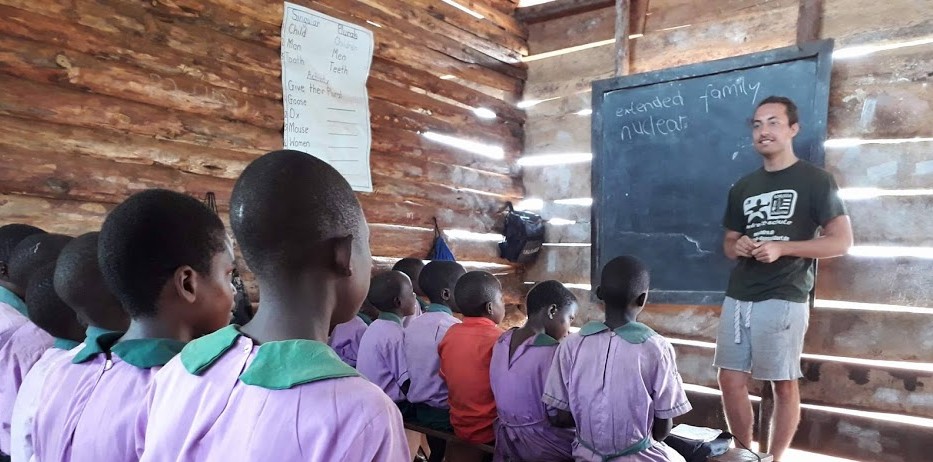 Singular Plurals
Child Children
Man Men
Tooth Teeth
Activity
Give their Plural
Goose
Ox
Mouse
Women
extended family
nuclear